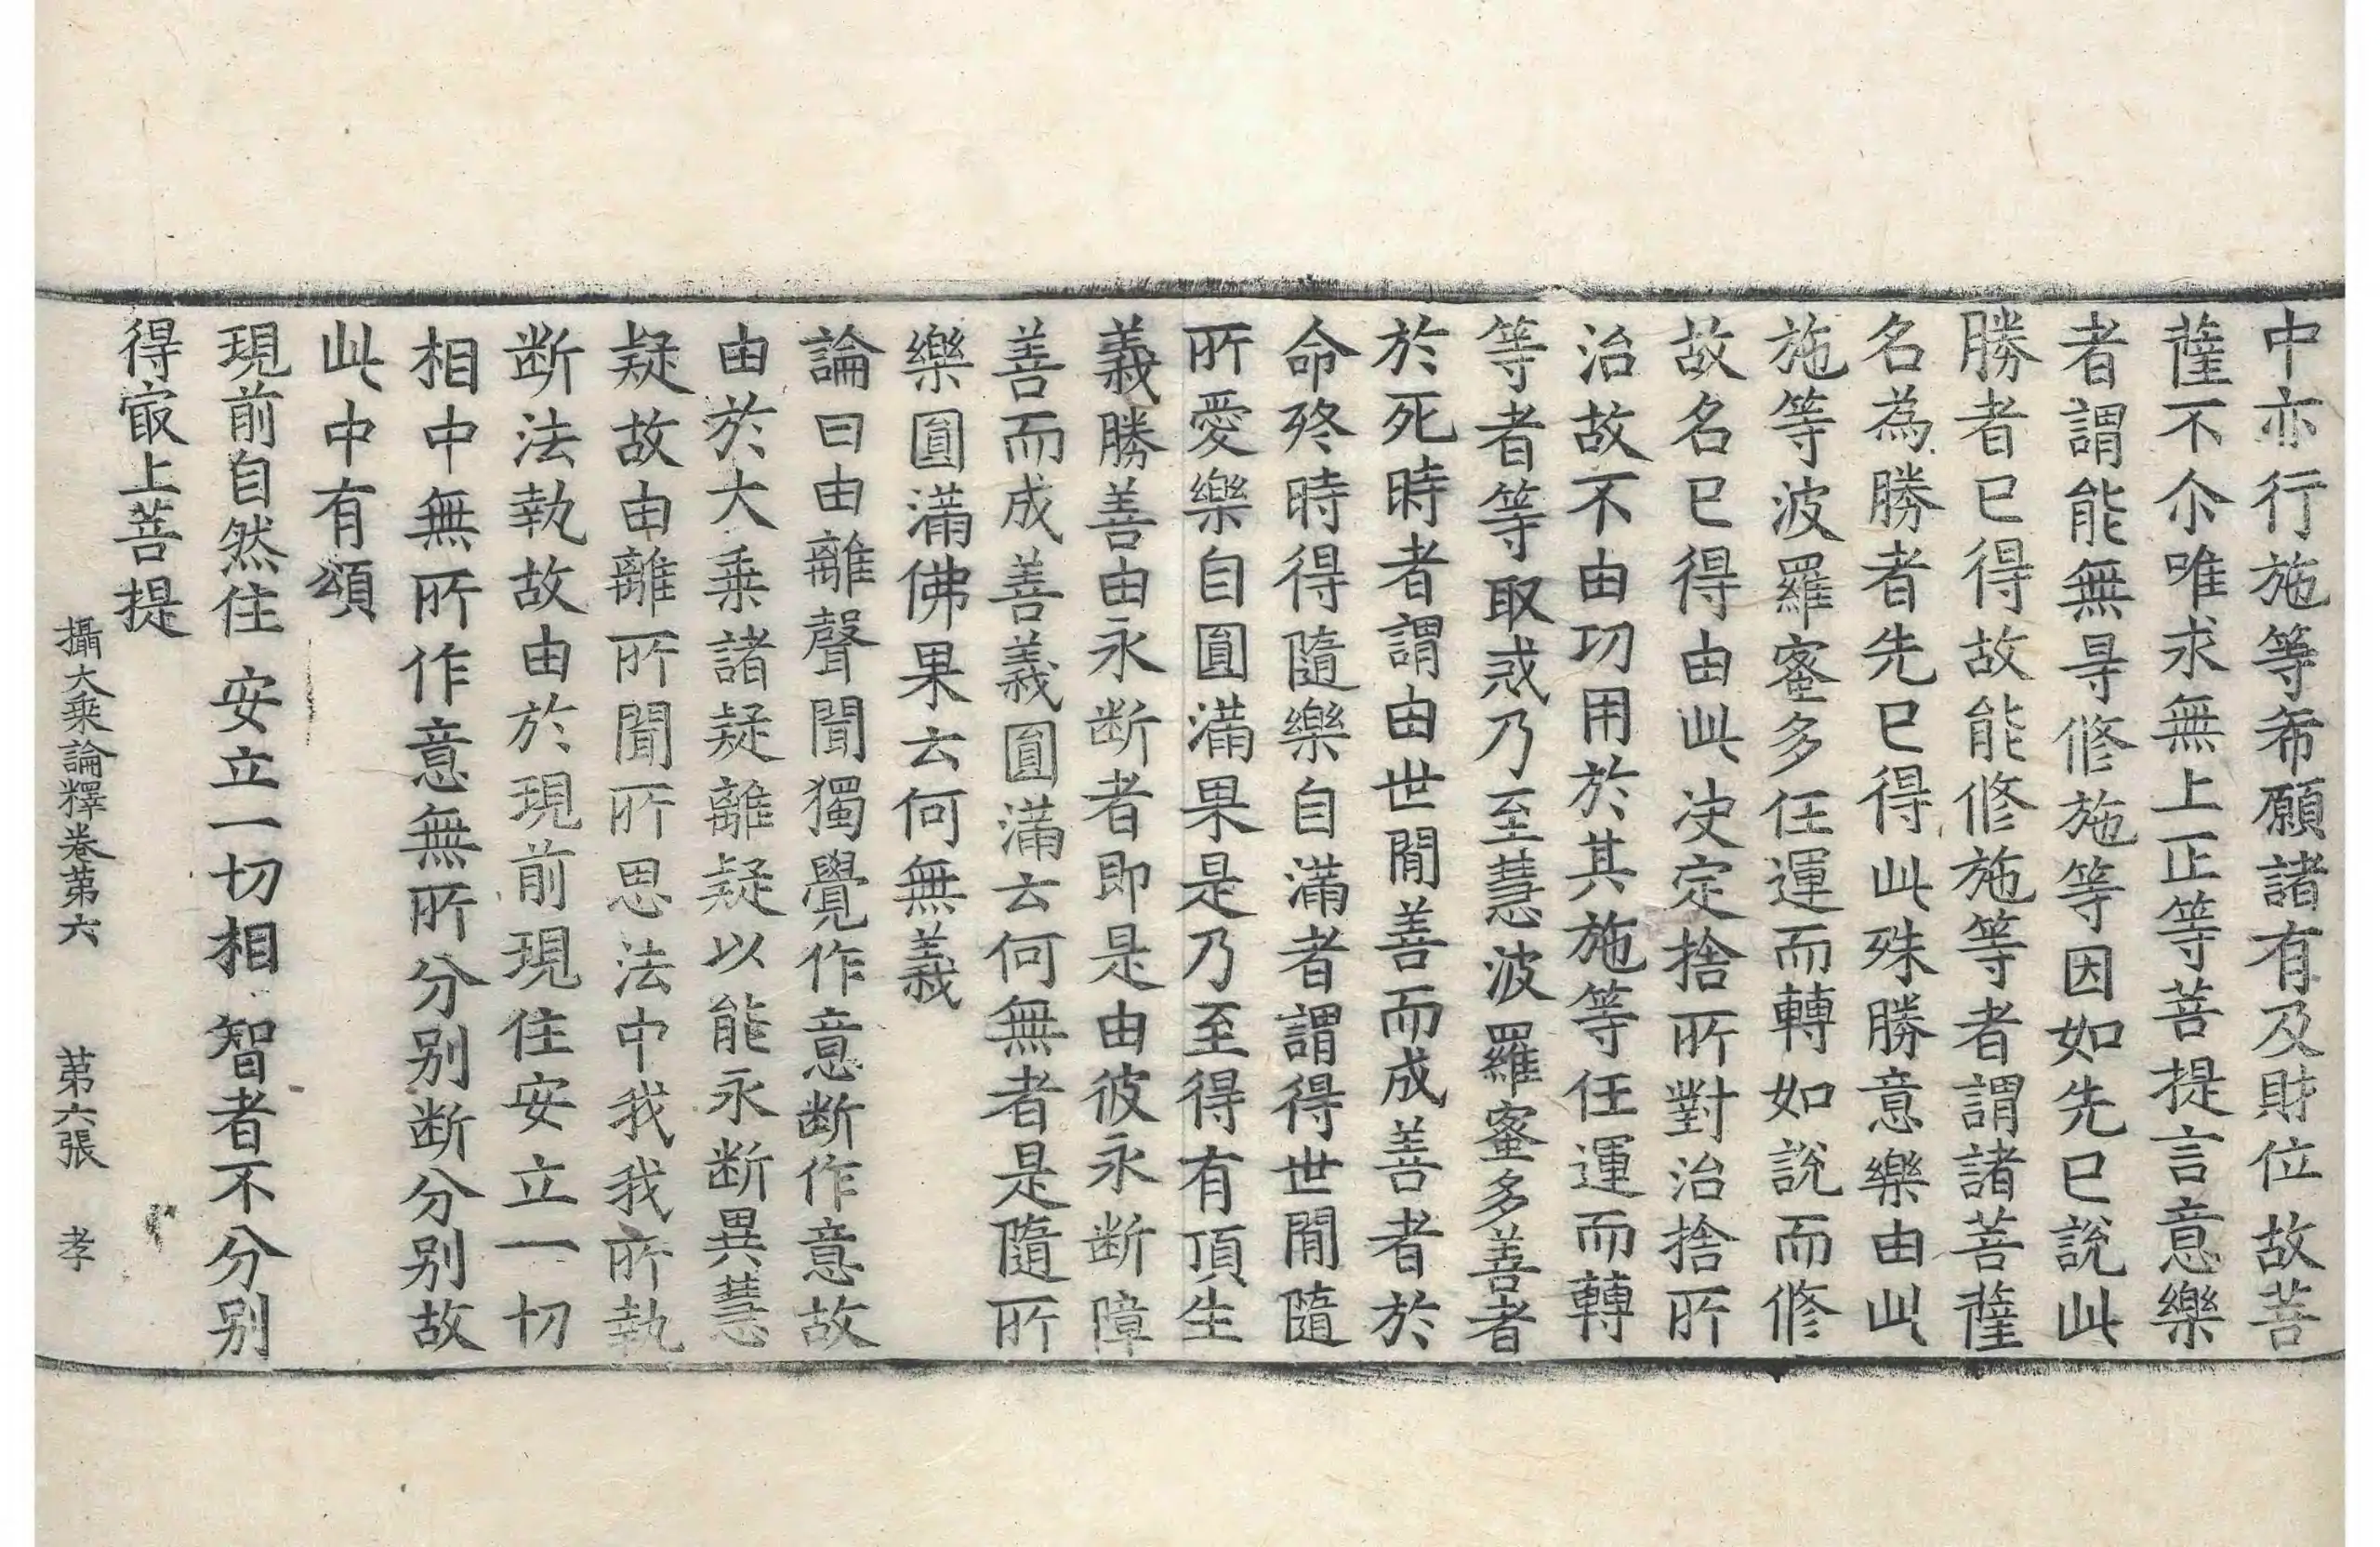 中亦行施等希願諸有及財位故菩
薩不尒唯求無上正等菩提言意樂
者謂能無㝵修施等因如先已說此
勝者已得故能修施等者謂諸菩薩
名為勝者先已得此殊勝意樂由此
施等波羅蜜多任運而轉如說而修
故名已得由此决定捨所對治捨所
治故不由功用於其施等任運而轉
等者等取或乃至慧波羅蜜多善者
於死時者謂由世間善而成善者於
命終時得隨樂自滿者謂得世間隨
所愛樂自圓滿果是乃至得有頂生
義勝善由永断者即是由彼永断障
善而成善義圓滿云何無者是隨所
樂圓滿佛果云何無義
論曰由離聲聞獨覺作意断作意故
由於大乗諸疑離疑以能永断異慧
疑故由離所聞所思法中我我所執
断法執故由於現前現住安立一切
相中無所作意無所分別断分別故
此中有頌
現前自然住　安立一切相　智者不分別
得㝡上菩提
攝大乗論釋卷苐六　苐六張　孝